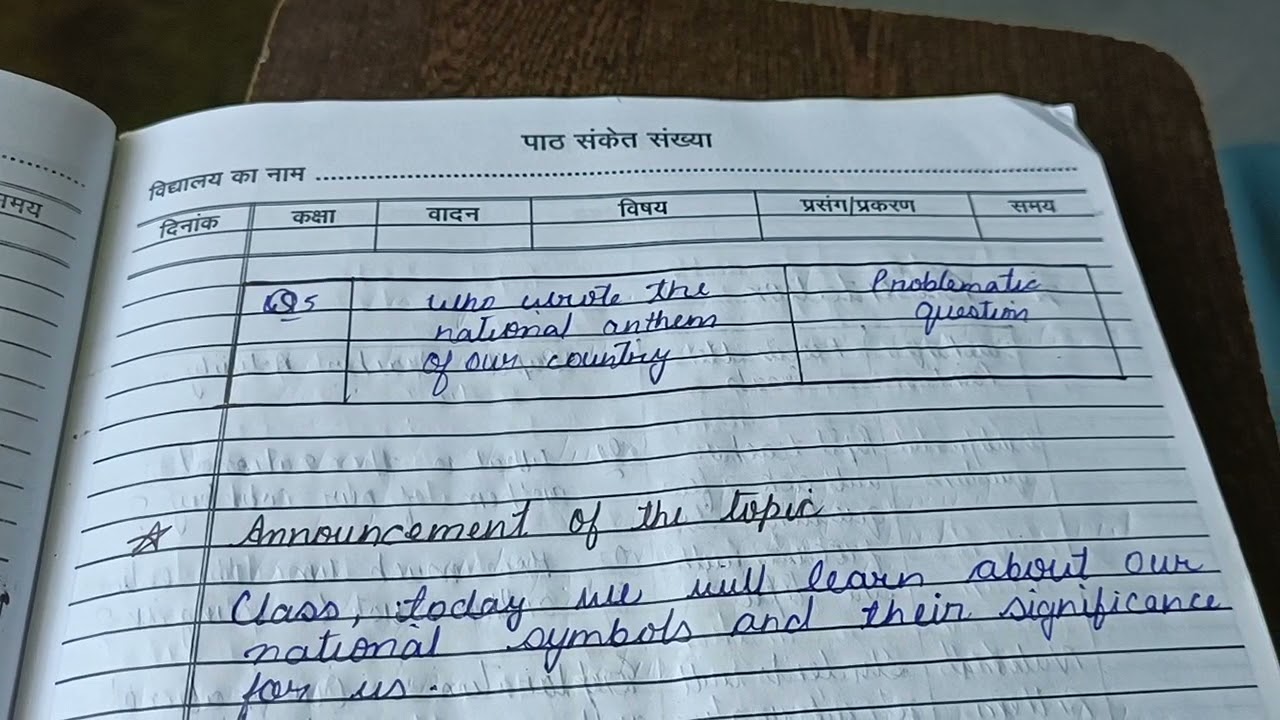 पाठ संकेत संख्या
विद्यालय का नाम
दिनांक कक्षा वादन विषय प्रसंग/प्रकरण समय
Q5 who wrote the national anthem of our country Problematic question
Announcement of the topic
Class, today we will learn about our
national symbols and their significance
for us.